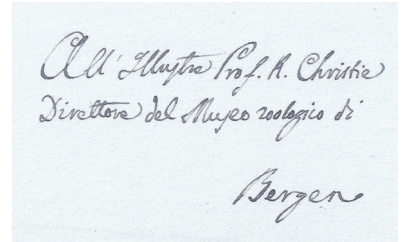 All' Illustre Prof. R. Christie
Direttore del Museo zoologico di
Bergen